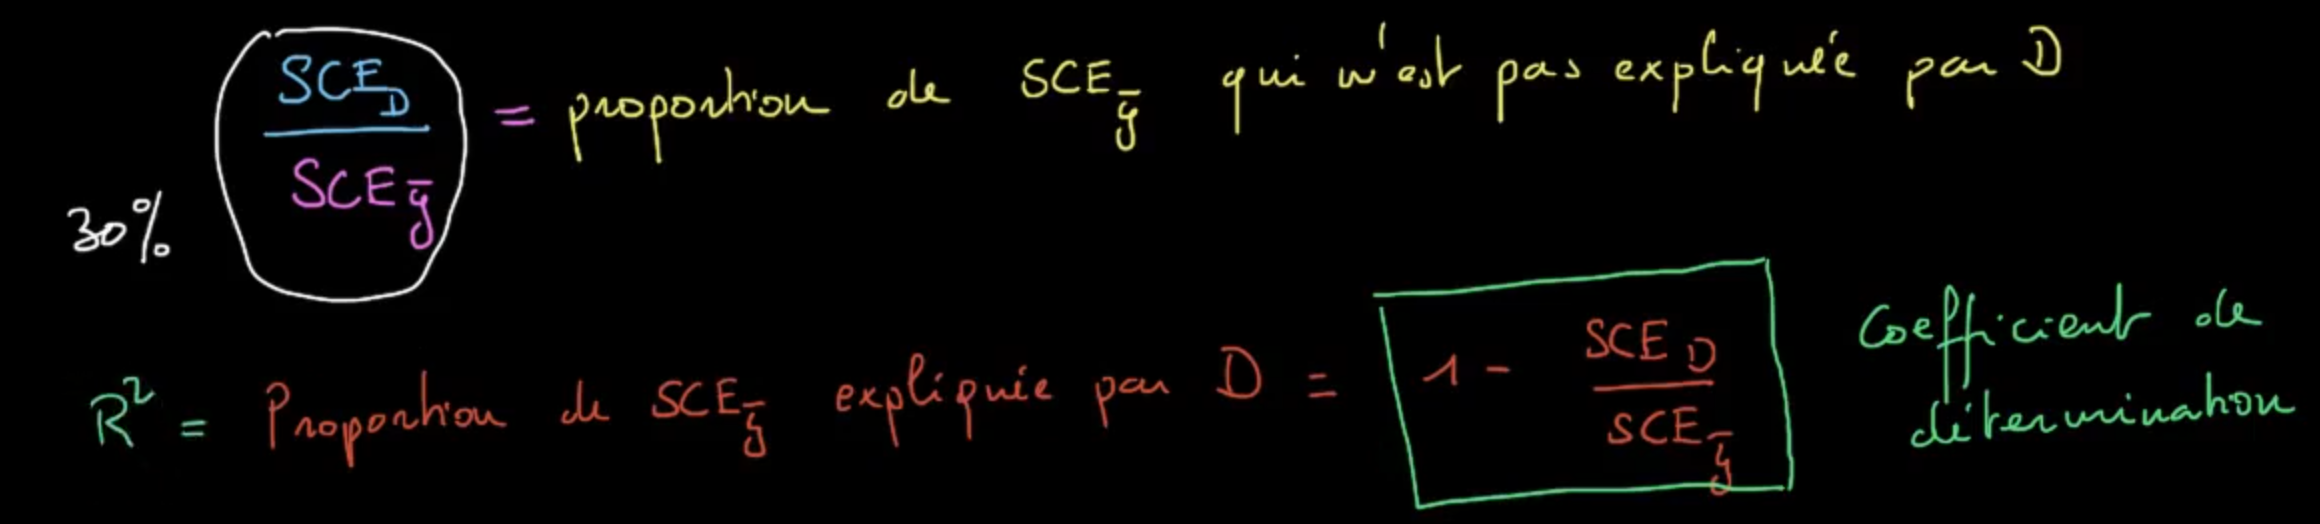 SCE_D / SCE_ȳ = proportion de SCE_ȳ qui n'est pas expliquée par D
30%
R² = Proportion de SCE_ȳ expliquée par D = 1 - SCE_D / SCE_ȳ Coefficient de
détermination